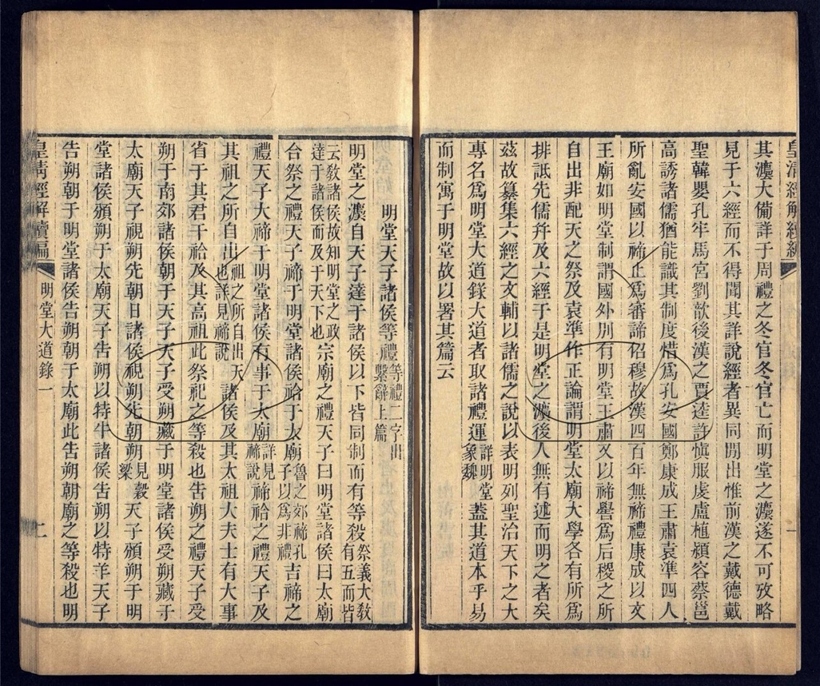 其灋大備詳于周禮之冬官冬官亡而明堂之灋遂不可攷略
見于六經而不得聞其詳說經者異同閒出惟前漢之戴德戴
聖韓嬰孔牢馬宮劉歆後漢之賈逵許慎服虔盧植潁容蔡邕
高誘諸儒猶能識其制度惜爲孔安國鄭康成王肅袁準四人
所亂安國以禘止爲審諦佋穆故漢四百年無禘禮康成以文
王廟如明堂制謂國外別有明堂王肅又以禘嚳爲后稷之所
自出非配天之祭及袁準作正論謂明堂太廟大學各有所爲
排詆先儒幷及六經于是明堂之灋後人無有述而明之者矣
茲故纂集六經之文輔以諸儒之說以表明列聖治天下之大
專名爲明堂大道錄大道者取諸禮運詳明堂象魏蓋其道本乎易
而制寓于明堂故以署其篇云
明堂天子諸侯等禮等禮二字出繫辭上篇
明堂之灋自天子達于諸侯以下皆同制而有等殺祭義大敎有五而皆
云敎諸侯故知明堂之政達于諸侯而及于天下也宗廟之禮天子曰明堂諸侯曰太廟
合祭之禮天子禘于明堂諸侯祫于太廟魯之郊禘孔子以爲非禮吉禘之
禮天子大禘于明堂諸侯有事于太廟詳見禘說禘祫之禮天子及
其祖之所自出祖之所自出天也詳見禘說諸侯及其太祖大夫士有大事
省于其君干祫及其高祖此祭祀之等殺也告朔之禮天子受
朔于南郊諸侯朝于天子天子受朔藏于明堂諸侯受朔藏于
太廟天子視朔先朝日諸侯視朔先朝朔見穀梁天子頒朔于明
堂諸侯頒朔于太廟天子告朔以特牛諸侯告朔以特羊天子
告朔朝于明堂諸侯告朔朝于太廟此告朔朝廟之等殺也明
皇清經解續編 明堂大道錄一 二